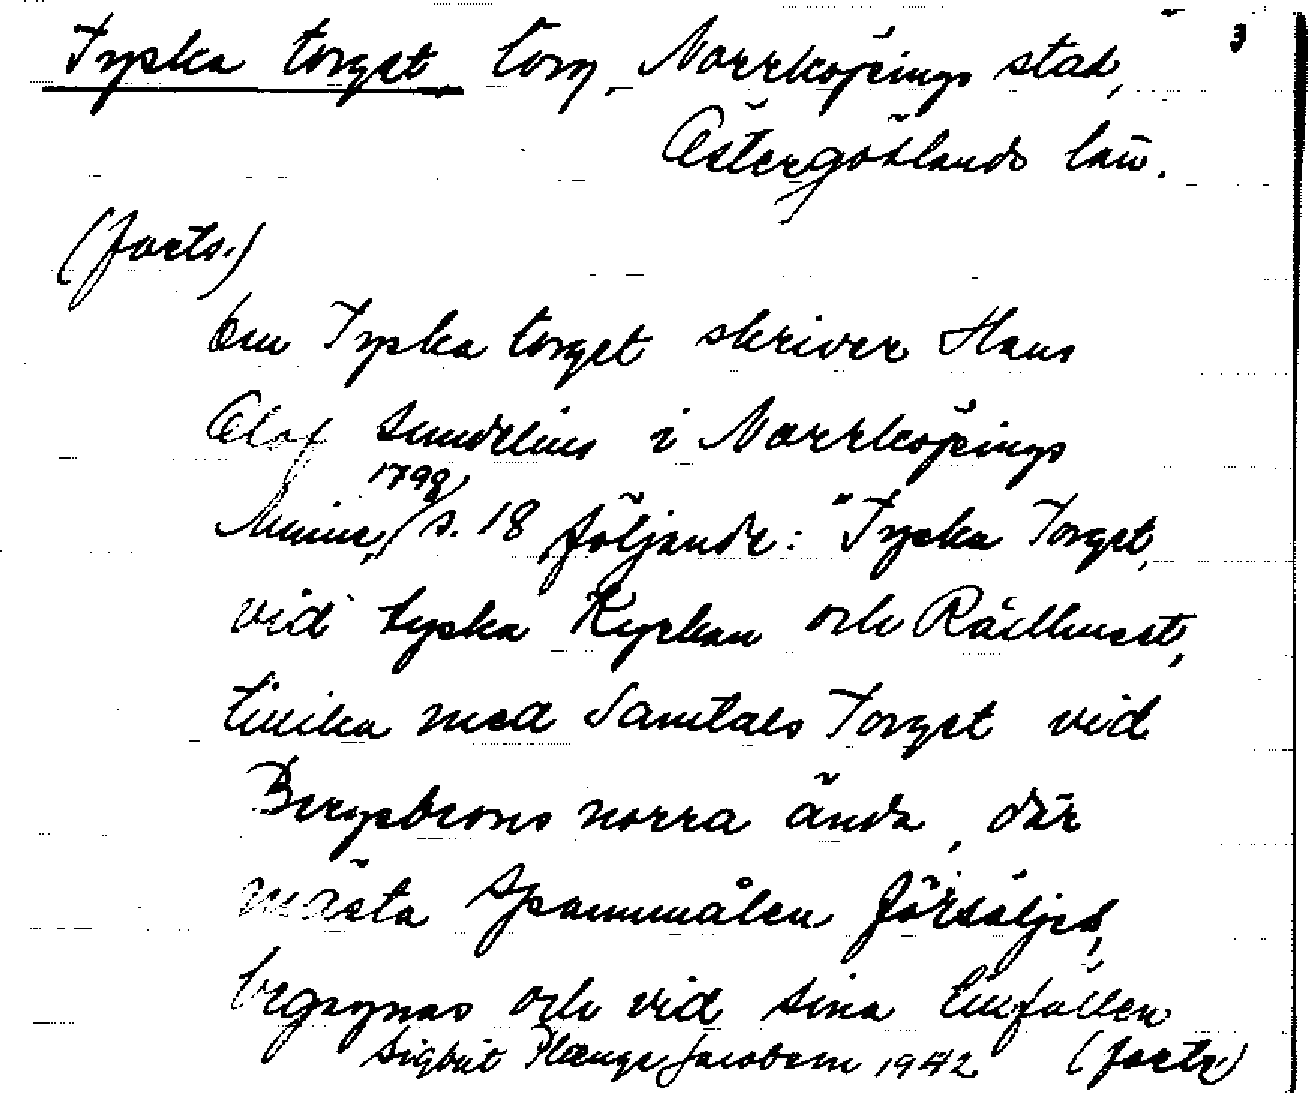 3
Tyska torget, torg, Norrköpings stad,
Östergötlands län.
(forts.)
Om Tyska torget skriver Hans
Olof Sundelius i Norrköpings
Minne, 1798, s. 18 följande: "Tyska Torget,
vid tyska Kyrkan och Rådhuset,
tillika med Samtals Torget vid
Bergsbrons norra ända, där
mästa Spannmålen försäljes,
begagnas och vid sina tillfällen
Sigbrit Plænge Jacobson 1942 (forts)